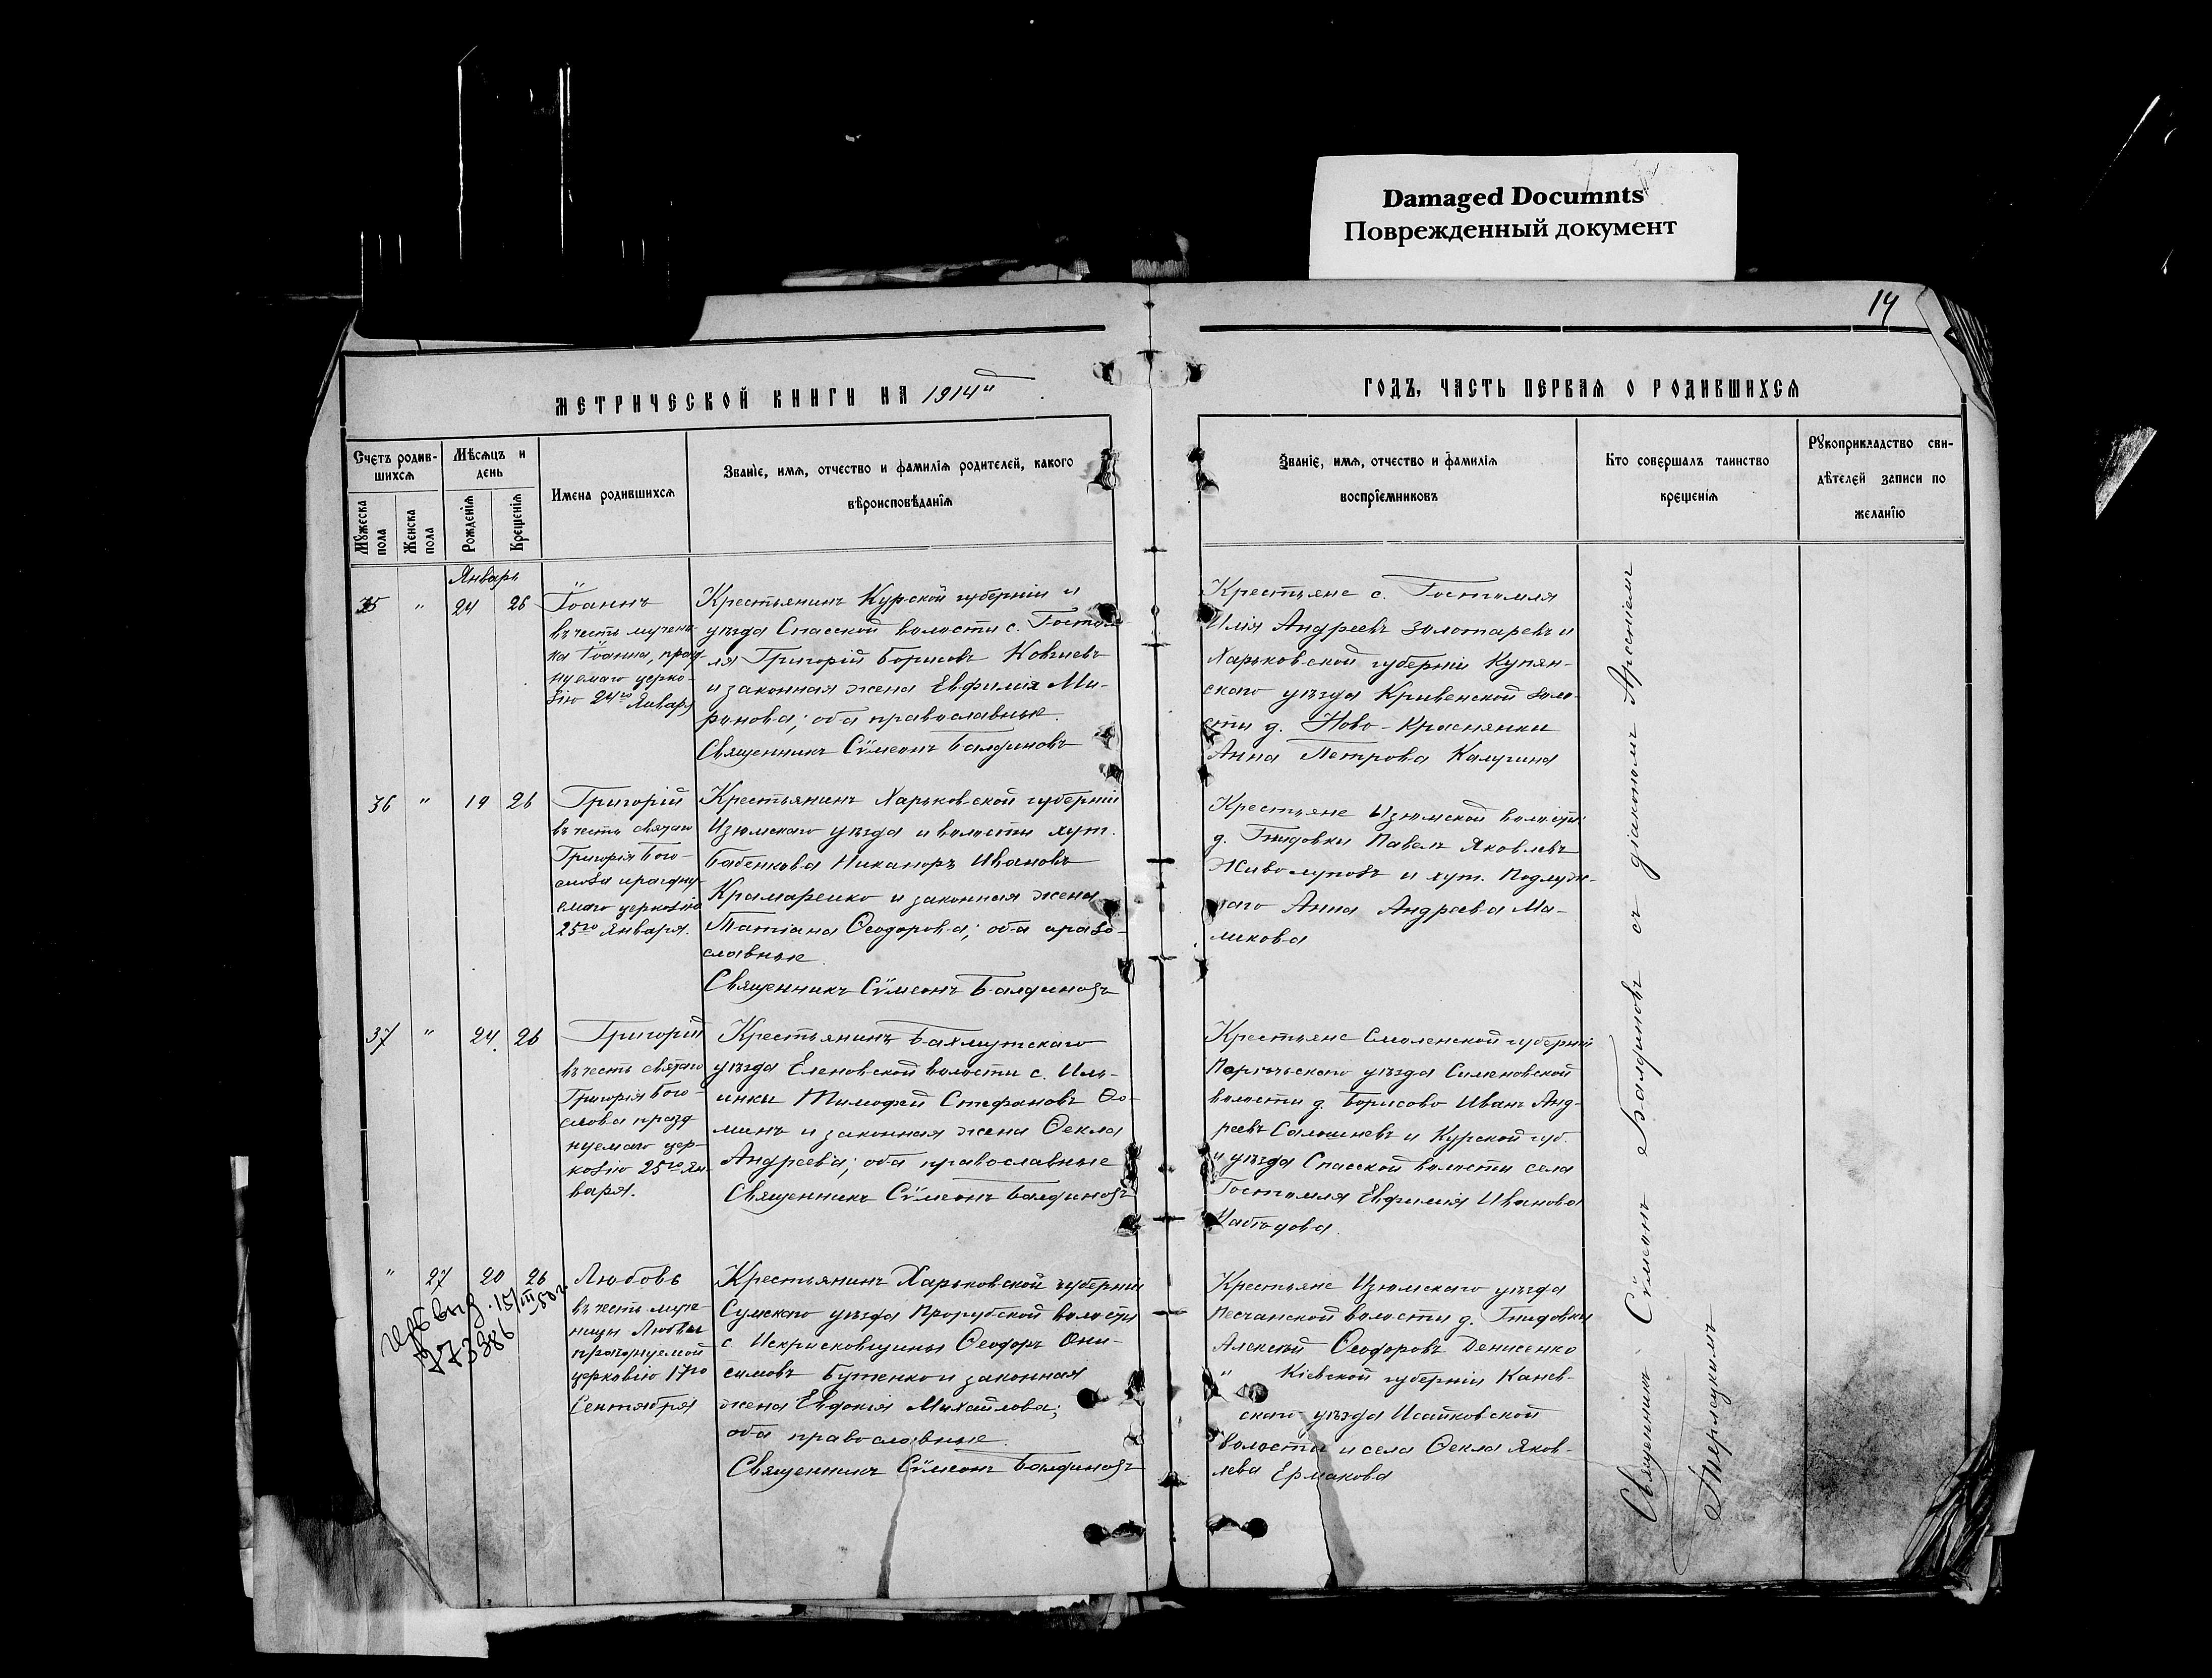 Damaged Documnts
Поврежденный документ
14
МЕТРИЧЕСКОЙ КНИГИ НА 1914й
ГОДЪ, ЧАСТЬ ПЕРВАЯ О РОДИВШИХСЯ
Счетъ родив-
шихся
Мужеска пола
Женска пола
Мѣсяцъ и
день
Рожденія
Крещенія
Имена родившихся
Званіе, имя, отчество и фамилія родителей, какого
вѣроисповѣданія
Званіе, имя, отчество и фамилія
воспріемниковъ
Кто совершалъ таинство
крещенія
Рукоприкладство сви-
дѣтелей записи по
желанію
Январь
35 " 24 26
Іоаннъ
въ честь мучени-
ка Іоанна, празд-
нуемаго церко-
вію 24го Января
Крестьянинъ Курской губерніи и
уѣзда Спасской волости с. Гостом
ля Григорій Борисовъ
и законная жена Евфимія Ми-
ронова; оба православные.
Священникъ Сѵмеонъ Балдиновъ
Крестьяне с. Гостомля
Илія Андреевъ Золотаревъ и
Харьковской губерніи Купян-
скаго уѣзда Кривенской воло-
сти д. Ново-Краснянки
Анна Петрова Калугина
36 " 19 26
Григорій
въ честь святаго
Григорія Бого-
слова праздну-
емаго церковію
25го Января.
Крестьянинъ Харьковской губерніи
Изюмскаго уѣзда и волости хут.
Бабенкова Никаноръ Ивановъ
Крамаренко и законная жена
Татіана Ѳеодорова; оба право-
славные.
Священникъ Сѵмеонъ Балдиновъ
Крестьяне Изюмской волости
д. Гнидовки Павелъ Яковлевъ
Живолуповъ и хут.
Анна Андреева Ма-
ликова
37 " 24 26
Григорій
въ честь святаго
Григорія Бого-
слова празд
нуемаго цер-
ковію 25го Ян-
варя.
Крестьянинъ Бахмутскаго
уѣзда Еленовской волости с. Иль-
инки Тимофей Стефановъ Ѳо-
минъ и законная жена Ѳекла
Андреева; оба православные
Священникъ Сѵмеонъ Балдиновъ
Крестьяне Смоленской губерніи
уѣзда Семеновской
волости д. Борисово Иванъ Анд-
реевъ и Курской губ.
и уѣзда Спасской волости села
Гостомля Евфимія Иванова
" 27 20 26
Любовь
въ честь муче-
ницы Любви
празднуемой
церковію 17го
Сентября
Крестьянинъ Харьковской губерніи
Сумскаго уѣзда Прорубской волости
с. Искрисковщины Ѳеодоръ Они-
симовъ Бутенко и законная
жена Евдокія Михайлова;
оба православные.
Священникъ Сѵмеонъ Балдиновъ
Крестьяне Изюмскаго уѣзда
Песчанской волости д. Гнидовки
Алексѣй Ѳеодоровъ Денисенко
" Кіевской губерніи Канев-
скаго уѣзда Исайковской
волости и села Ѳекла Яков-
лева Ермакова
Священникъ Сѵмеонъ Балдиновъ съ діакономъ Арсеніемъ
73386